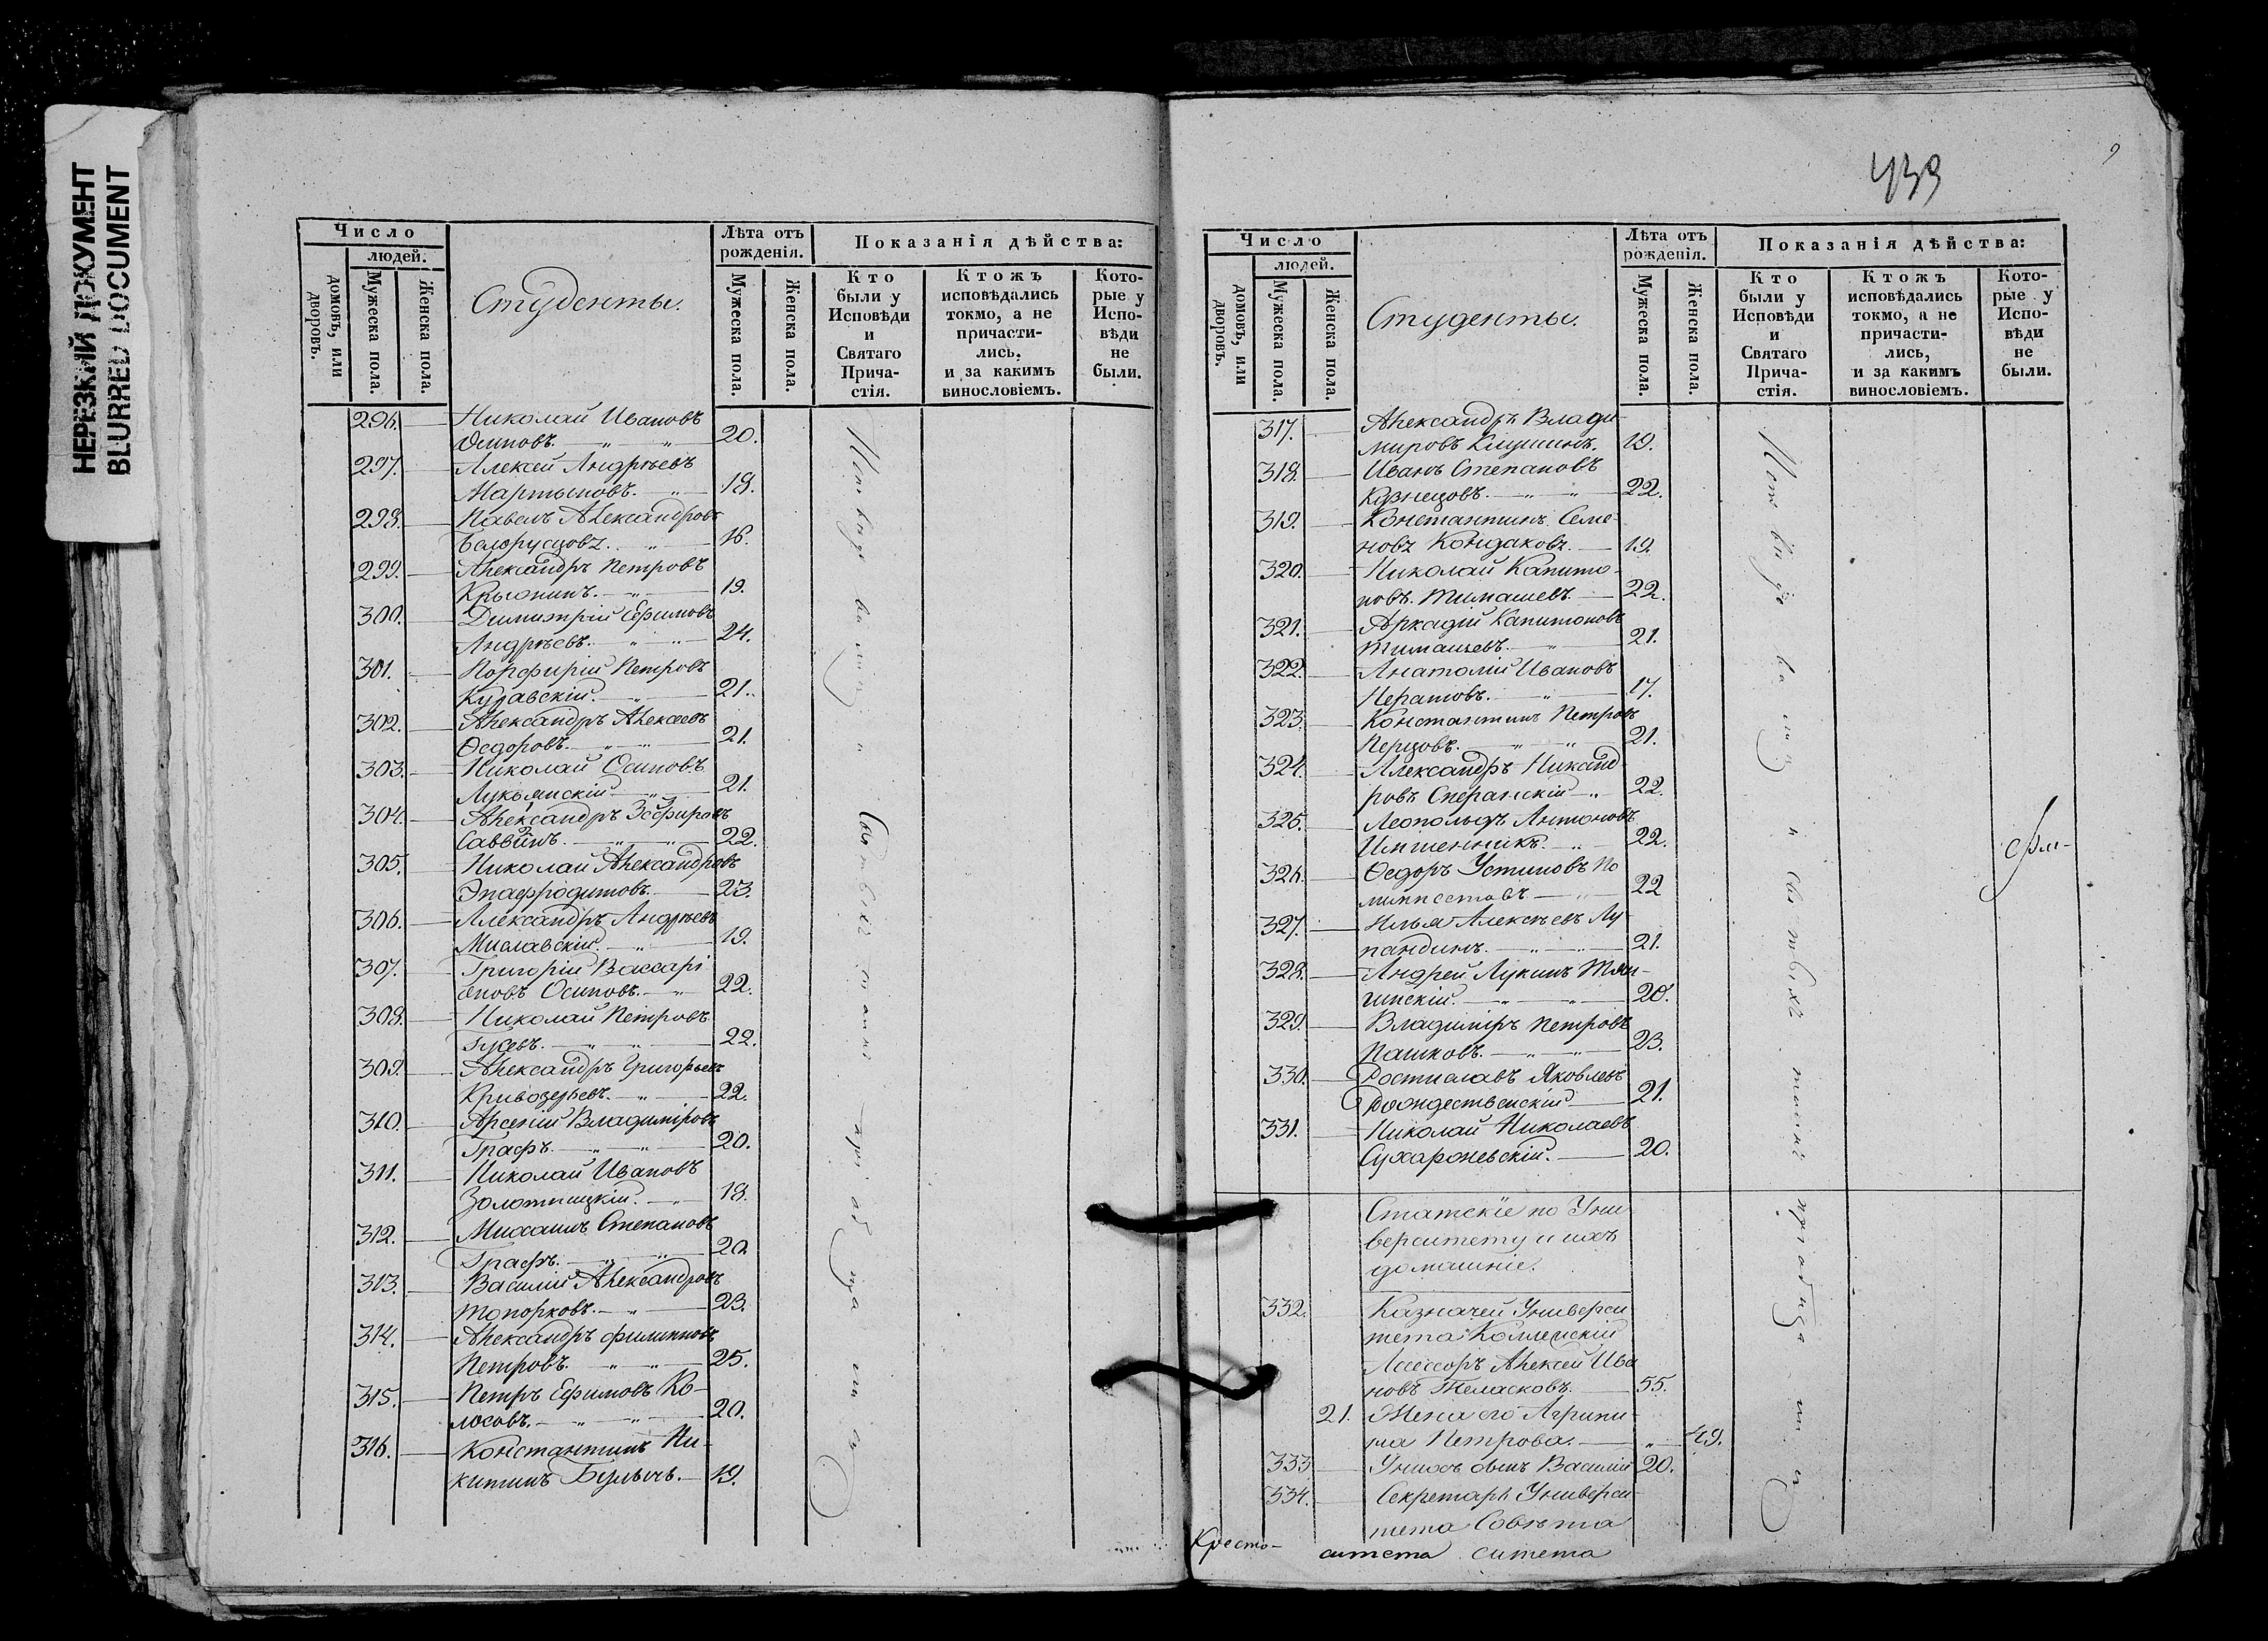 НЕРЕЗКИЙ ДОКУМЕНТ
BLURRED DOCUMENT
Число
людей.
домовъ, или дворовъ.
Мужеска пола.
Женска пола.
Студенты.
Лѣта отъ рожденія.
Мужеска пола.
Женска пола.
Показанія дѣйства:
Кто были у Исповѣди и Святаго Причастія.
Ктожъ исповѣдались токмо, а не причастились, и за какимъ винословіемъ.
Которые у Исповѣди не были.
296. Николай Ивановъ
Осиповъ. 20.
297. Алексей Андреевъ
Мартыновъ. 18.
298. Павелъ Александровъ
Белорусцовъ. 16.
299. Александръ Петровъ
Крысинъ. 19.
300. Димитрій Ефимовъ
Андреевъ. 24.
301. Порфирій Петровъ
Кудавскій. 21.
302. Александръ Алексеевъ
Ѳедоровъ. 21.
303. Николай Осиповъ
Лукомскій 21.
304. Александръ Зефировъ
Саввинъ. 22.
305. Николай Александровъ
Эпафродитовъ. 23.
306. Александръ Андреевъ
Миславскій. 19.
307. Григорій Вассарі
оновъ Осиповъ. 22.
308. Николай Петровъ
Гусевъ. 22.
309. Александръ Григорьевъ
Кривозерьевъ. 22.
310. Арсеній Владиміровъ
Графъ. 20.
311. Николай Ивановъ
Золотницкій. 18.
312. Михаилъ Степановъ
Графъ. 20.
313. Василій Александровъ
Топорковъ. 23.
314. Александръ Филипповъ
Петровъ. 25.
315. Петръ Ефимовъ Ко-
лосовъ. 20.
316. Константинъ Ни-
китинъ Булычъ. 19.
439
Число
людей.
домовъ, или дворовъ.
Мужеска пола.
Женска пола.
Студенты.
Лѣта отъ рожденія.
Мужеска пола.
Женска пола.
Показанія дѣйства:
Кто были у Исповѣди и Святаго Причастія.
Ктожъ исповѣдались токмо, а не причастились, и за какимъ винословіемъ.
Которые у Исповѣди не были.
317. Александръ Влади-
мировъ Клушинъ. 19.
318. Иванъ Степановъ
Кузнецовъ. 22.
319. Константинъ Семе-
новъ Кондаковъ. 19.
320. Николай Капито-
новъ Тимашевъ. 22.
321. Аркадій Капитоновъ
Тимашевъ. 21.
322. Анатолій Ивановъ
Нератовъ. 17.
323. Константинъ Петровъ
Перцовъ. 21.
324. Александръ Никанд-
ровъ Сперанскій 22.
325. Леопольдъ Антоновъ
Имшенникъ. 22.
326. Ѳедоръ Устиновъ По
лимпсестовъ 22
327. Илья Алексеевъ Лу-
пандинъ. 21.
328. Андрей Лукинъ Тян-
гинскій. 20.
329. Владиміръ Петровъ
Пашковъ. 23.
330. Ростиславъ Яковлевъ
Рождественскій 21.
331. Николай Николаевъ
Сухаржевскій. 20.
Статскіе по Уни
верситету и ихъ
домашніе.
332. Казначей Универси
тета Коллежскій
Ассесоръ Алексей Ива
новъ Теласковъ. 55.
21. Жена его Агрипи-
на Петрова. 49.
333. У нихъ сынъ Василій 20.
334. Секретарь Универси-
тета Совѣта
Кресто- ситета ситета